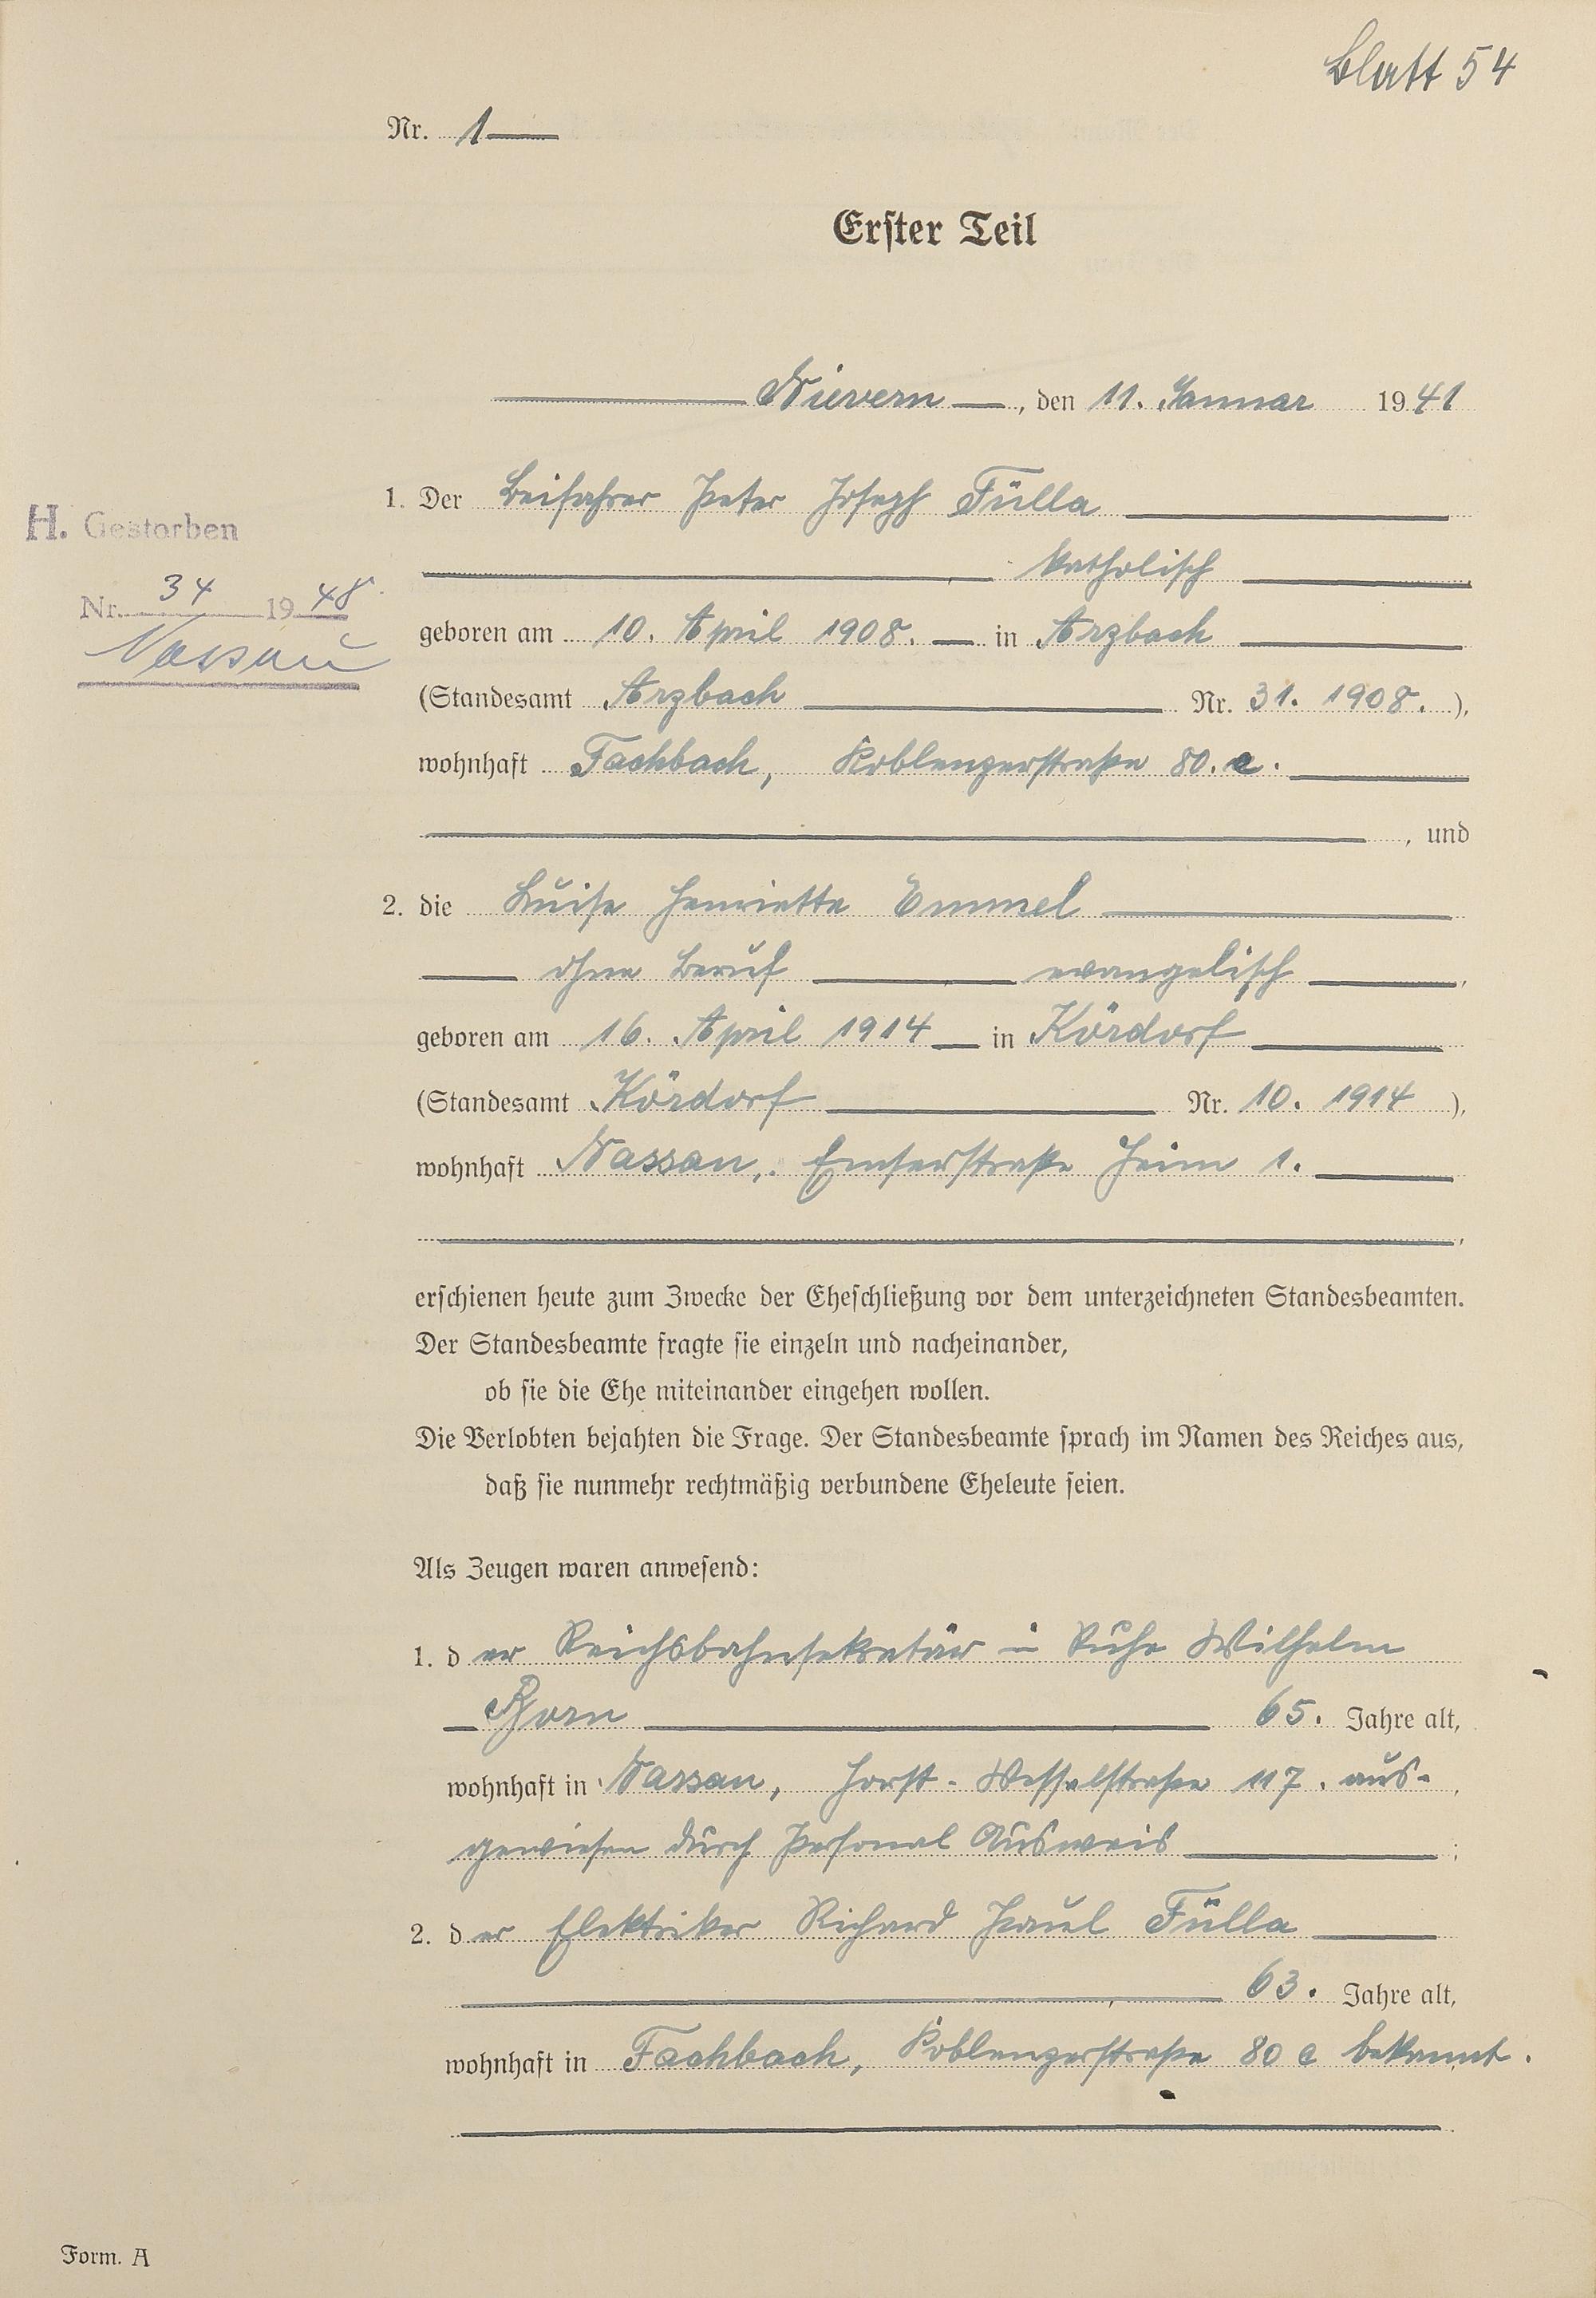 Blatt 54
Nr. 1
Erster Teil
Nievern, den 11. Januar 1941
1. Der Beifahrer Peter Joseph Fülla
katholisch
H. Gestorben
Nr. 34 1948
Nassau
geboren am 10. April 1908. in Arzbach
(Standesamt Arzbach Nr. 31. 1908.),
wohnhaft Fachbach, Koblenzerstraße 80.
, und
2. die Luise Henriette Emmel
ohne Beruf evangelisch,
geboren am 16. April 1914 in Kördorf
(Standesamt Kördorf Nr. 10. 1914),
wohnhaft Nassau, Emserstraße Heim 1.
,
erschienen heute zum Zwecke der Eheschließung vor dem unterzeichneten Standesbeamten.
Der Standesbeamte fragte sie einzeln und nacheinander,
ob sie die Ehe miteinander eingehen wollen.
Die Verlobten bejahten die Frage. Der Standesbeamte sprach im Namen des Reiches aus,
daß sie nunmehr rechtmäßig verbundene Eheleute seien.
Als Zeugen waren anwesend:
1. der Reichsbahnsekretär in Ruhe Wilhelm
65. Jahre alt,
wohnhaft in Nassau, Horst-Wesselstraße 117. aus-,
gewiesen durch Personal Ausweis;
2. der Elektriker Richard Paul Fülla
63. Jahre alt,
wohnhaft in Fachbach, Koblenzerstraße 80 c bekannt.
Form. A